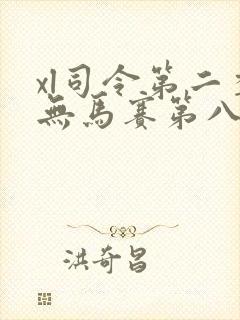 xl司令第二季
無馬賽第八
洪奇昌